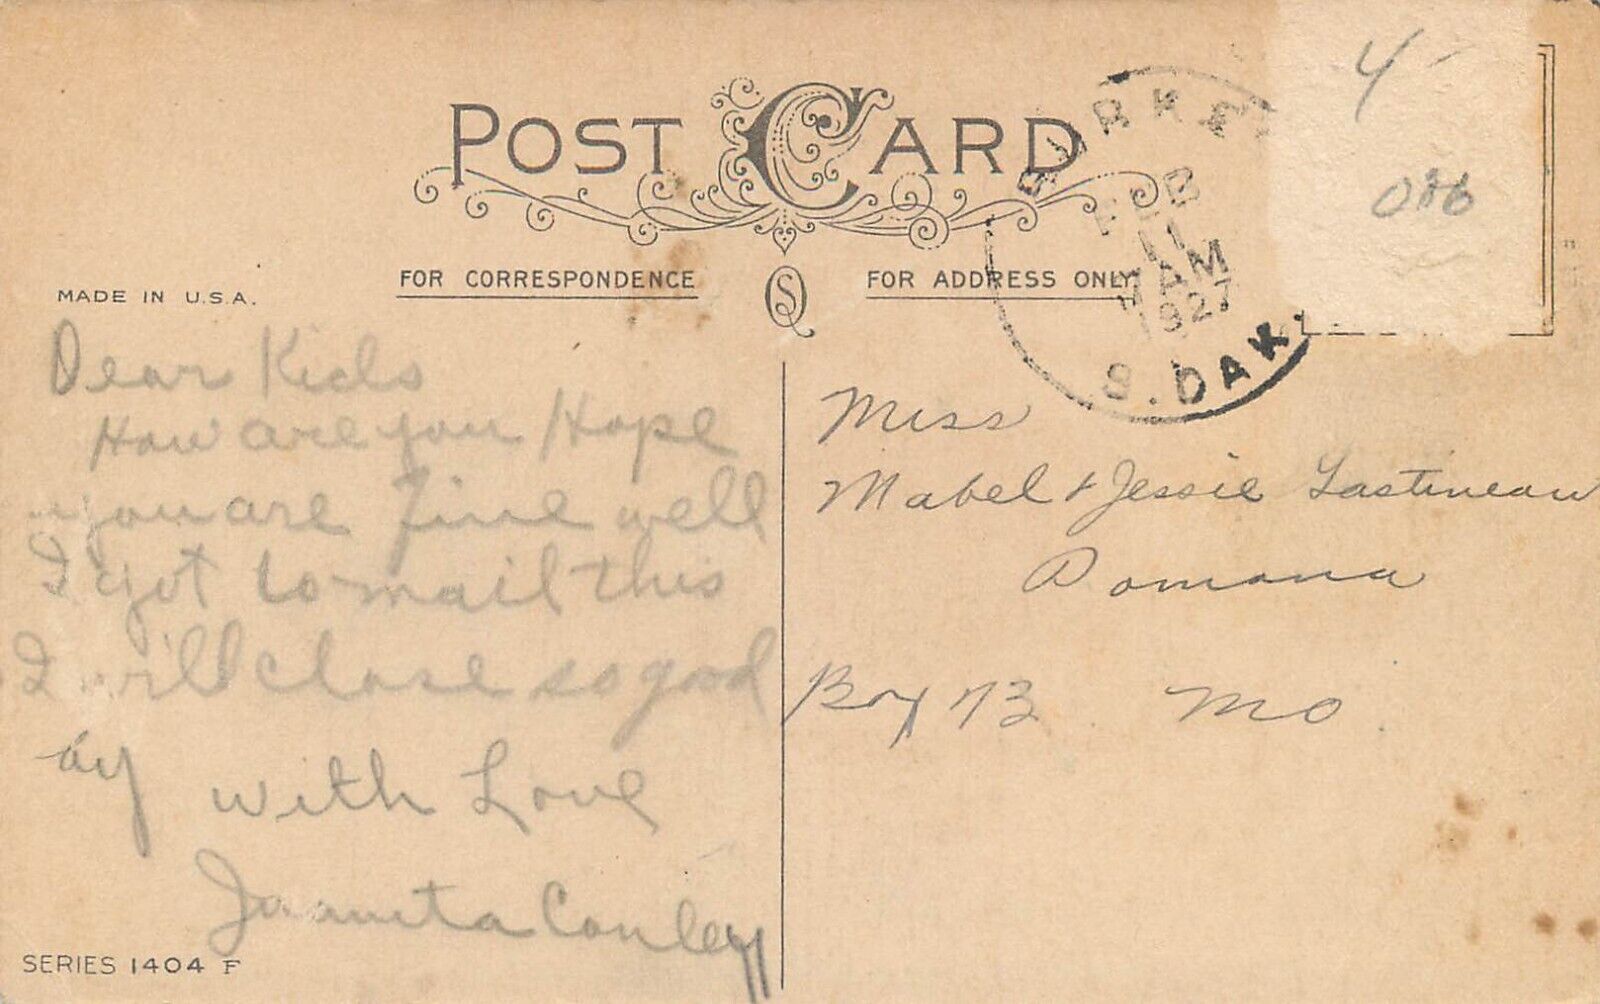 POST CARD
FOR CORRESPONDENCE
FOR ADDRESS ONLY
MADE IN U.S.A.
BURKE
FEB
11
7 AM
1927
S. DAK.
4
Dear Kids
How are you Hope
you are Fine well
I got to mail this
I will close so good
by
with Love
Juanita Conley
SERIES 1404 F
Miss
Mabel & Jessie Lastineau
Pomona
Box 73 Mo